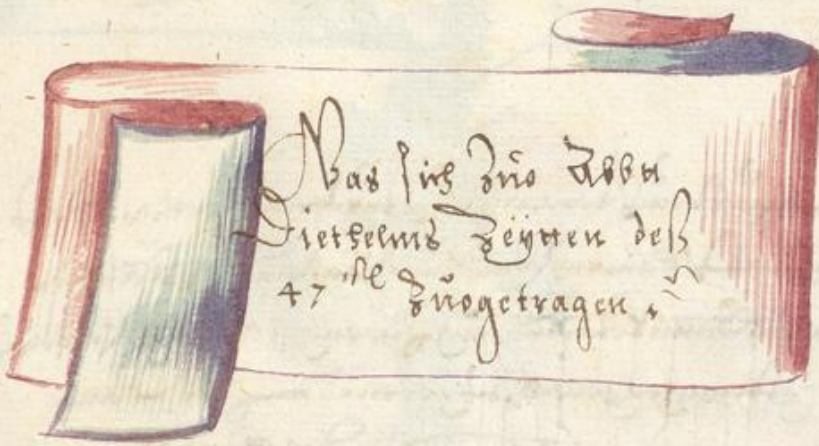 Was sich zuo Abbtt
Diethelms Zeÿtten deß
47 zuogetragen.